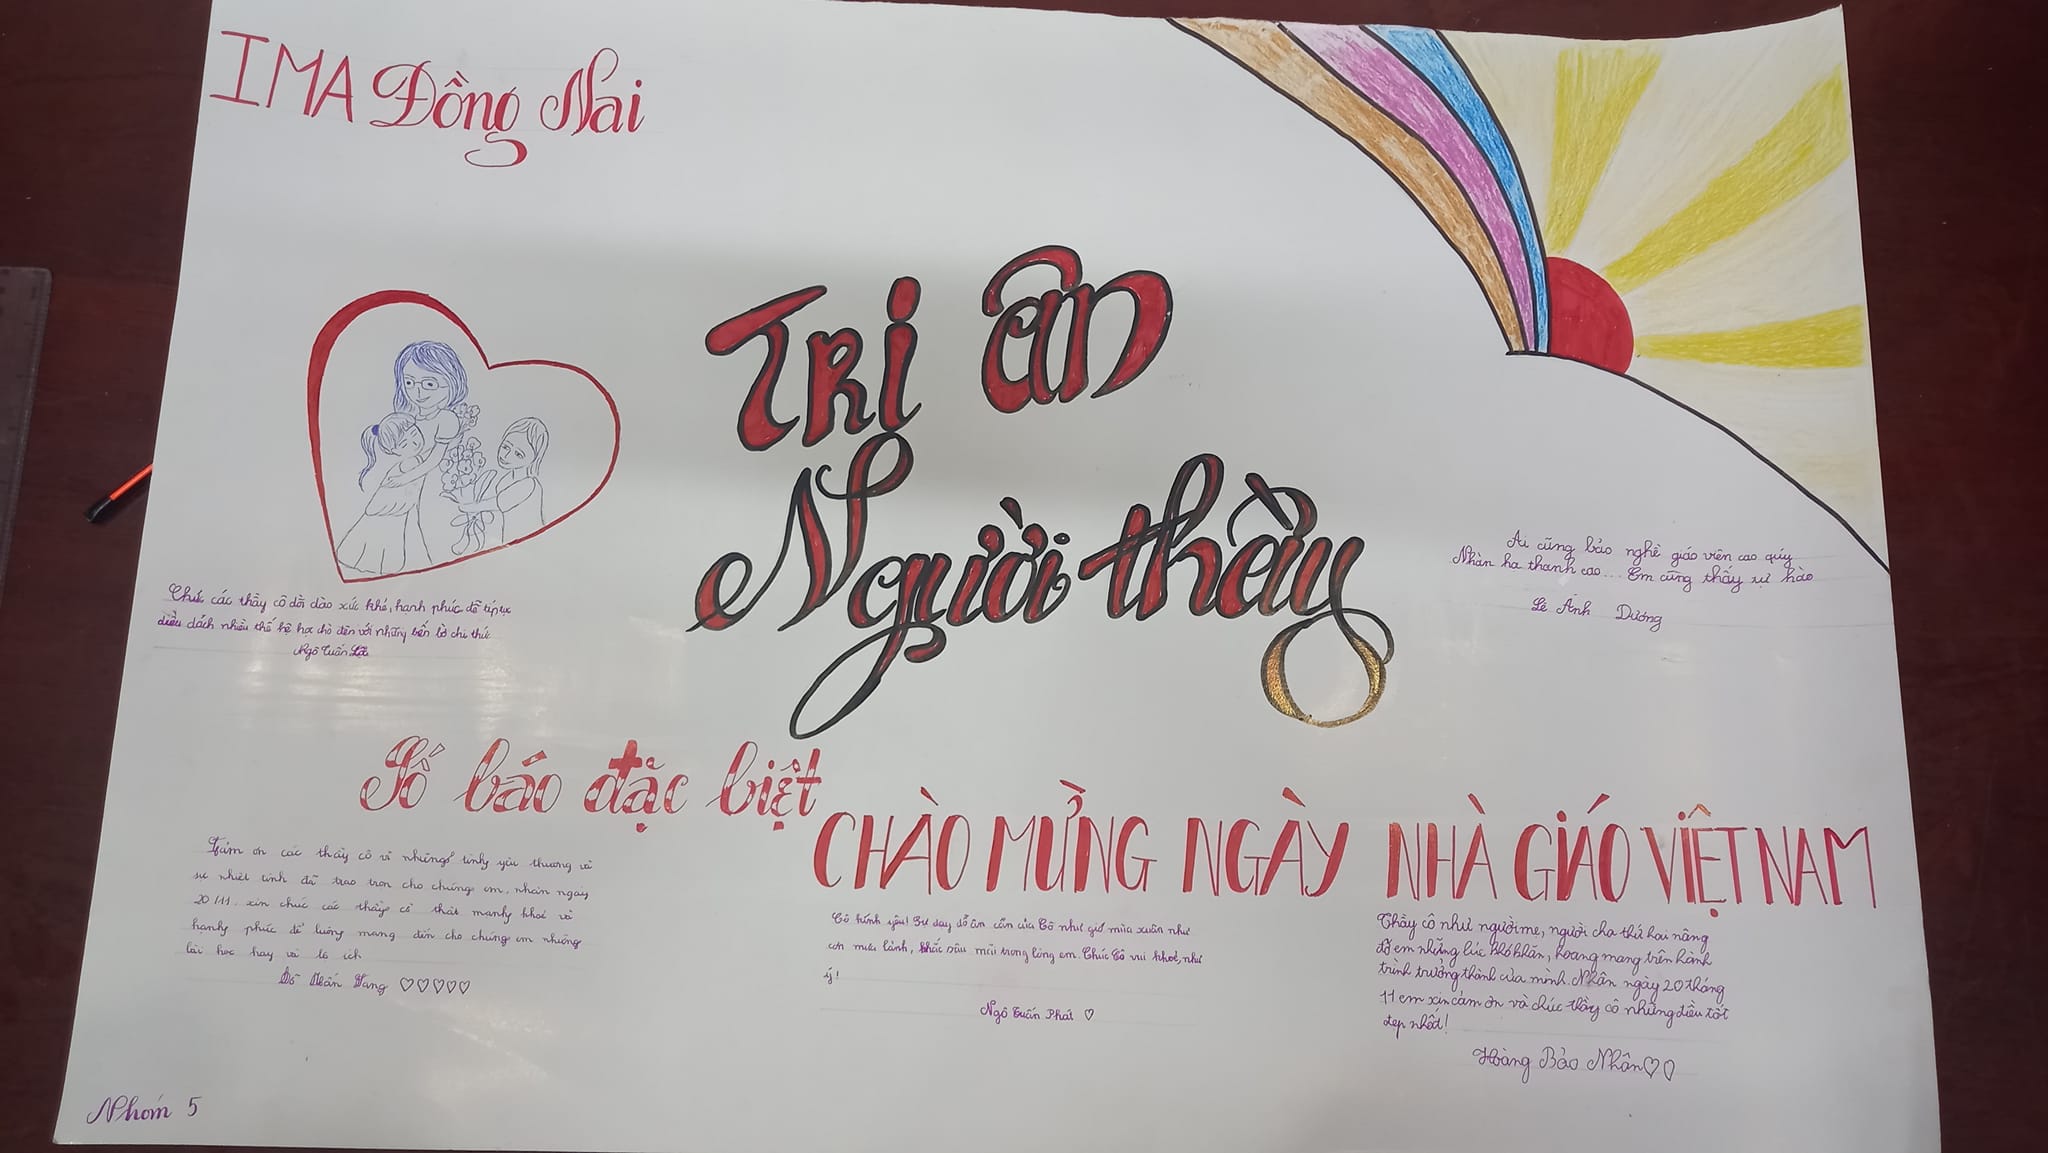 IMA Đồng Nai
Tri ân
Người thầy
Ai cũng bảo nghề giáo viên cao quý
Nhàn hạ thanh cao... Em cũng thấy tự hào
Lê Ánh Dương
Chúc các thầy cô dồi dào sức khỏe, hạnh phúc để tiếp tục
dìu dắt nhiều thế hệ học trò đến với những bến bờ tri thức
Ngô Tuấn
Số báo đặc biệt
CHÀO MỪNG NGÀY NHÀ GIÁO VIỆT NAM
Cảm ơn các thầy cô vì những tình yêu thương và
sự nhiệt tình đã trao trọn cho chúng em, nhân ngày
20/11 xin chúc các thầy cô thật mạnh khoẻ và
hạnh phúc để luông mang đến cho chúng em những
bài học hay và bổ ích
♡♡♡♡♡
Cô kính yêu! Sự dạy dỗ ân cần của Cô như gió mùa xuân như
cơn mưa lành, khắc sâu mãi trong lòng em. Chúc Cô vui khoẻ, như
ý!
Ngô Tuấn Phát ♡
Thầy cô như người mẹ, người cha thứ hai nâng
đỡ em những lúc khó khăn, hoang mang trên hành
trình trưởng thành của mình. Nhân ngày 20 tháng
11 em xin cảm ơn và chúc thầy cô những điều tốt
đẹp nhất!
Hoàng Bảo Nhân♡♡
Nhóm 5